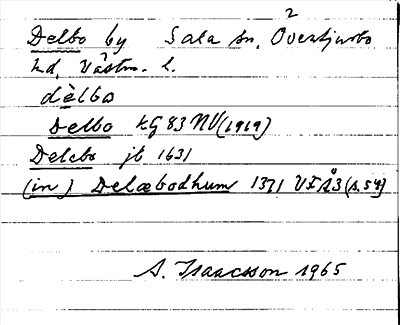 Delbo by Sala sn, Övertjurbo 2
hd, Västm. l.
dèlbo
Delbo kG 83 NV (1919)
Delebo jb 1631
(in) Delæbodhum 1371 VFÅ3 (s.54)
A. Isaacsson 1965